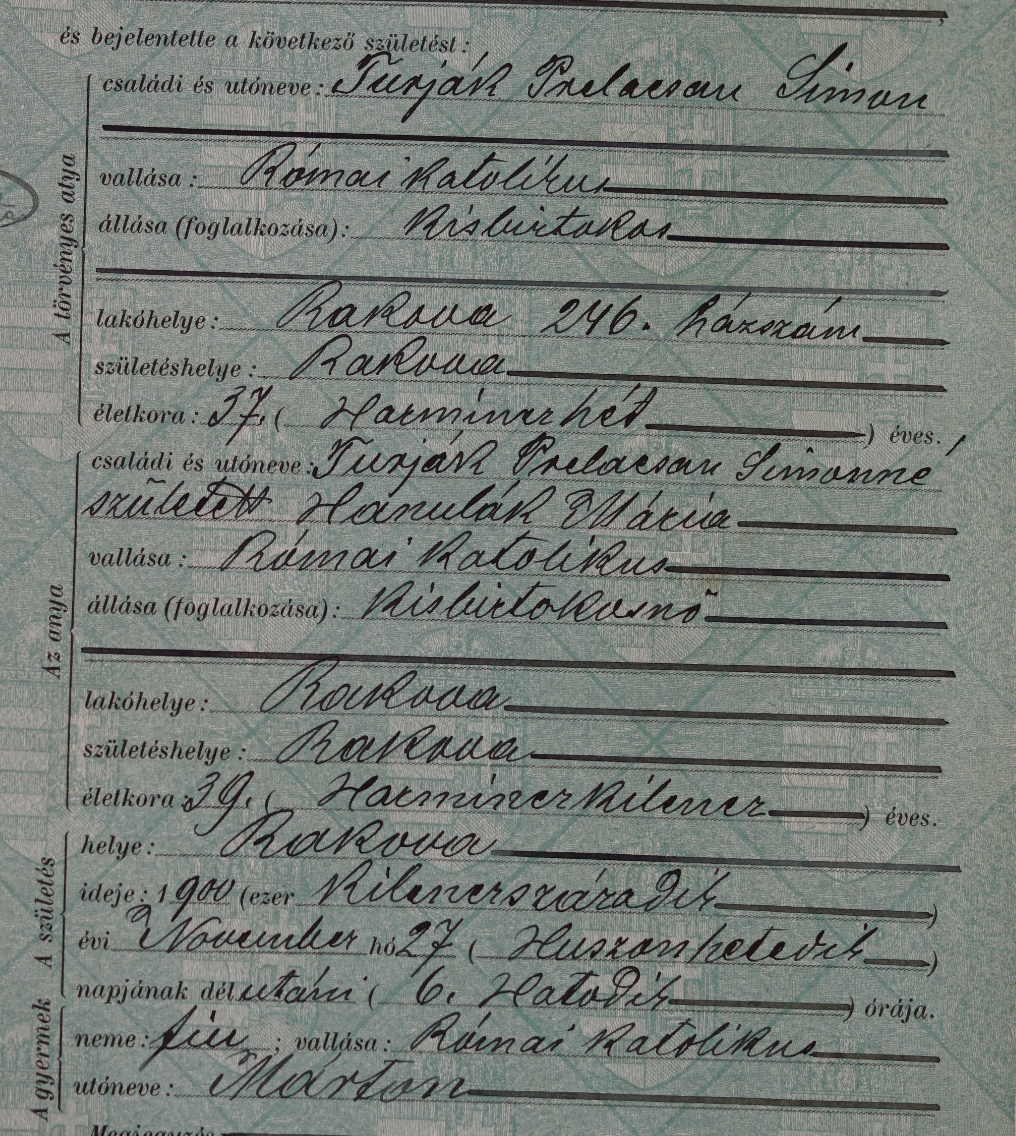 és bejelentette a következő születést:
A törvényes atya
családi és utóneve: Turják Prelacsan Simon
vallása: Római katolikus
állása (foglalkozása): Kisbirtokos
lakóhelye: Rakova 246. házszám
születéshelye: Rakova
életkora: 37. (Harmincz hét) éves.
Az anya
családi és utóneve: Turják Prelacsan Simonné,
született Hanulák Mária
vallása: Római katolikus
állása (foglalkozása): Kisbirtokosnő
lakóhelye: Rakova
születéshelye: Rakova
életkora: 39. (Harmincz kilencz) éves.
A születés
helye: Rakova
ideje: 1900 (ezer kilenczszázadik)
évi November hó 27 (Huszonhetedik)
napjának délutáni (6. Hatodik) órája.
A gyermek
neme: fiu; vallása: Római katolikus
utóneve: Márton
Megjegyzés